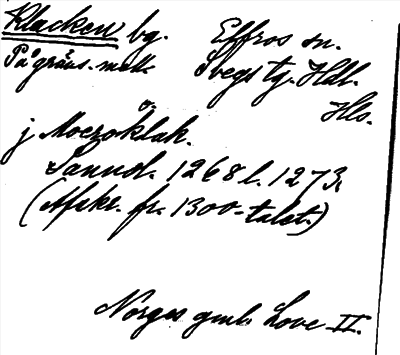 Klacken bg. Elfros sn.
På gräns. mell. Svegs tg. Hdl.
Hls.
j Moezoklak.
Sannd. 1268 l. 1273.
(Afskr. fr. 1300-talet.)
Norges gml. Love II.